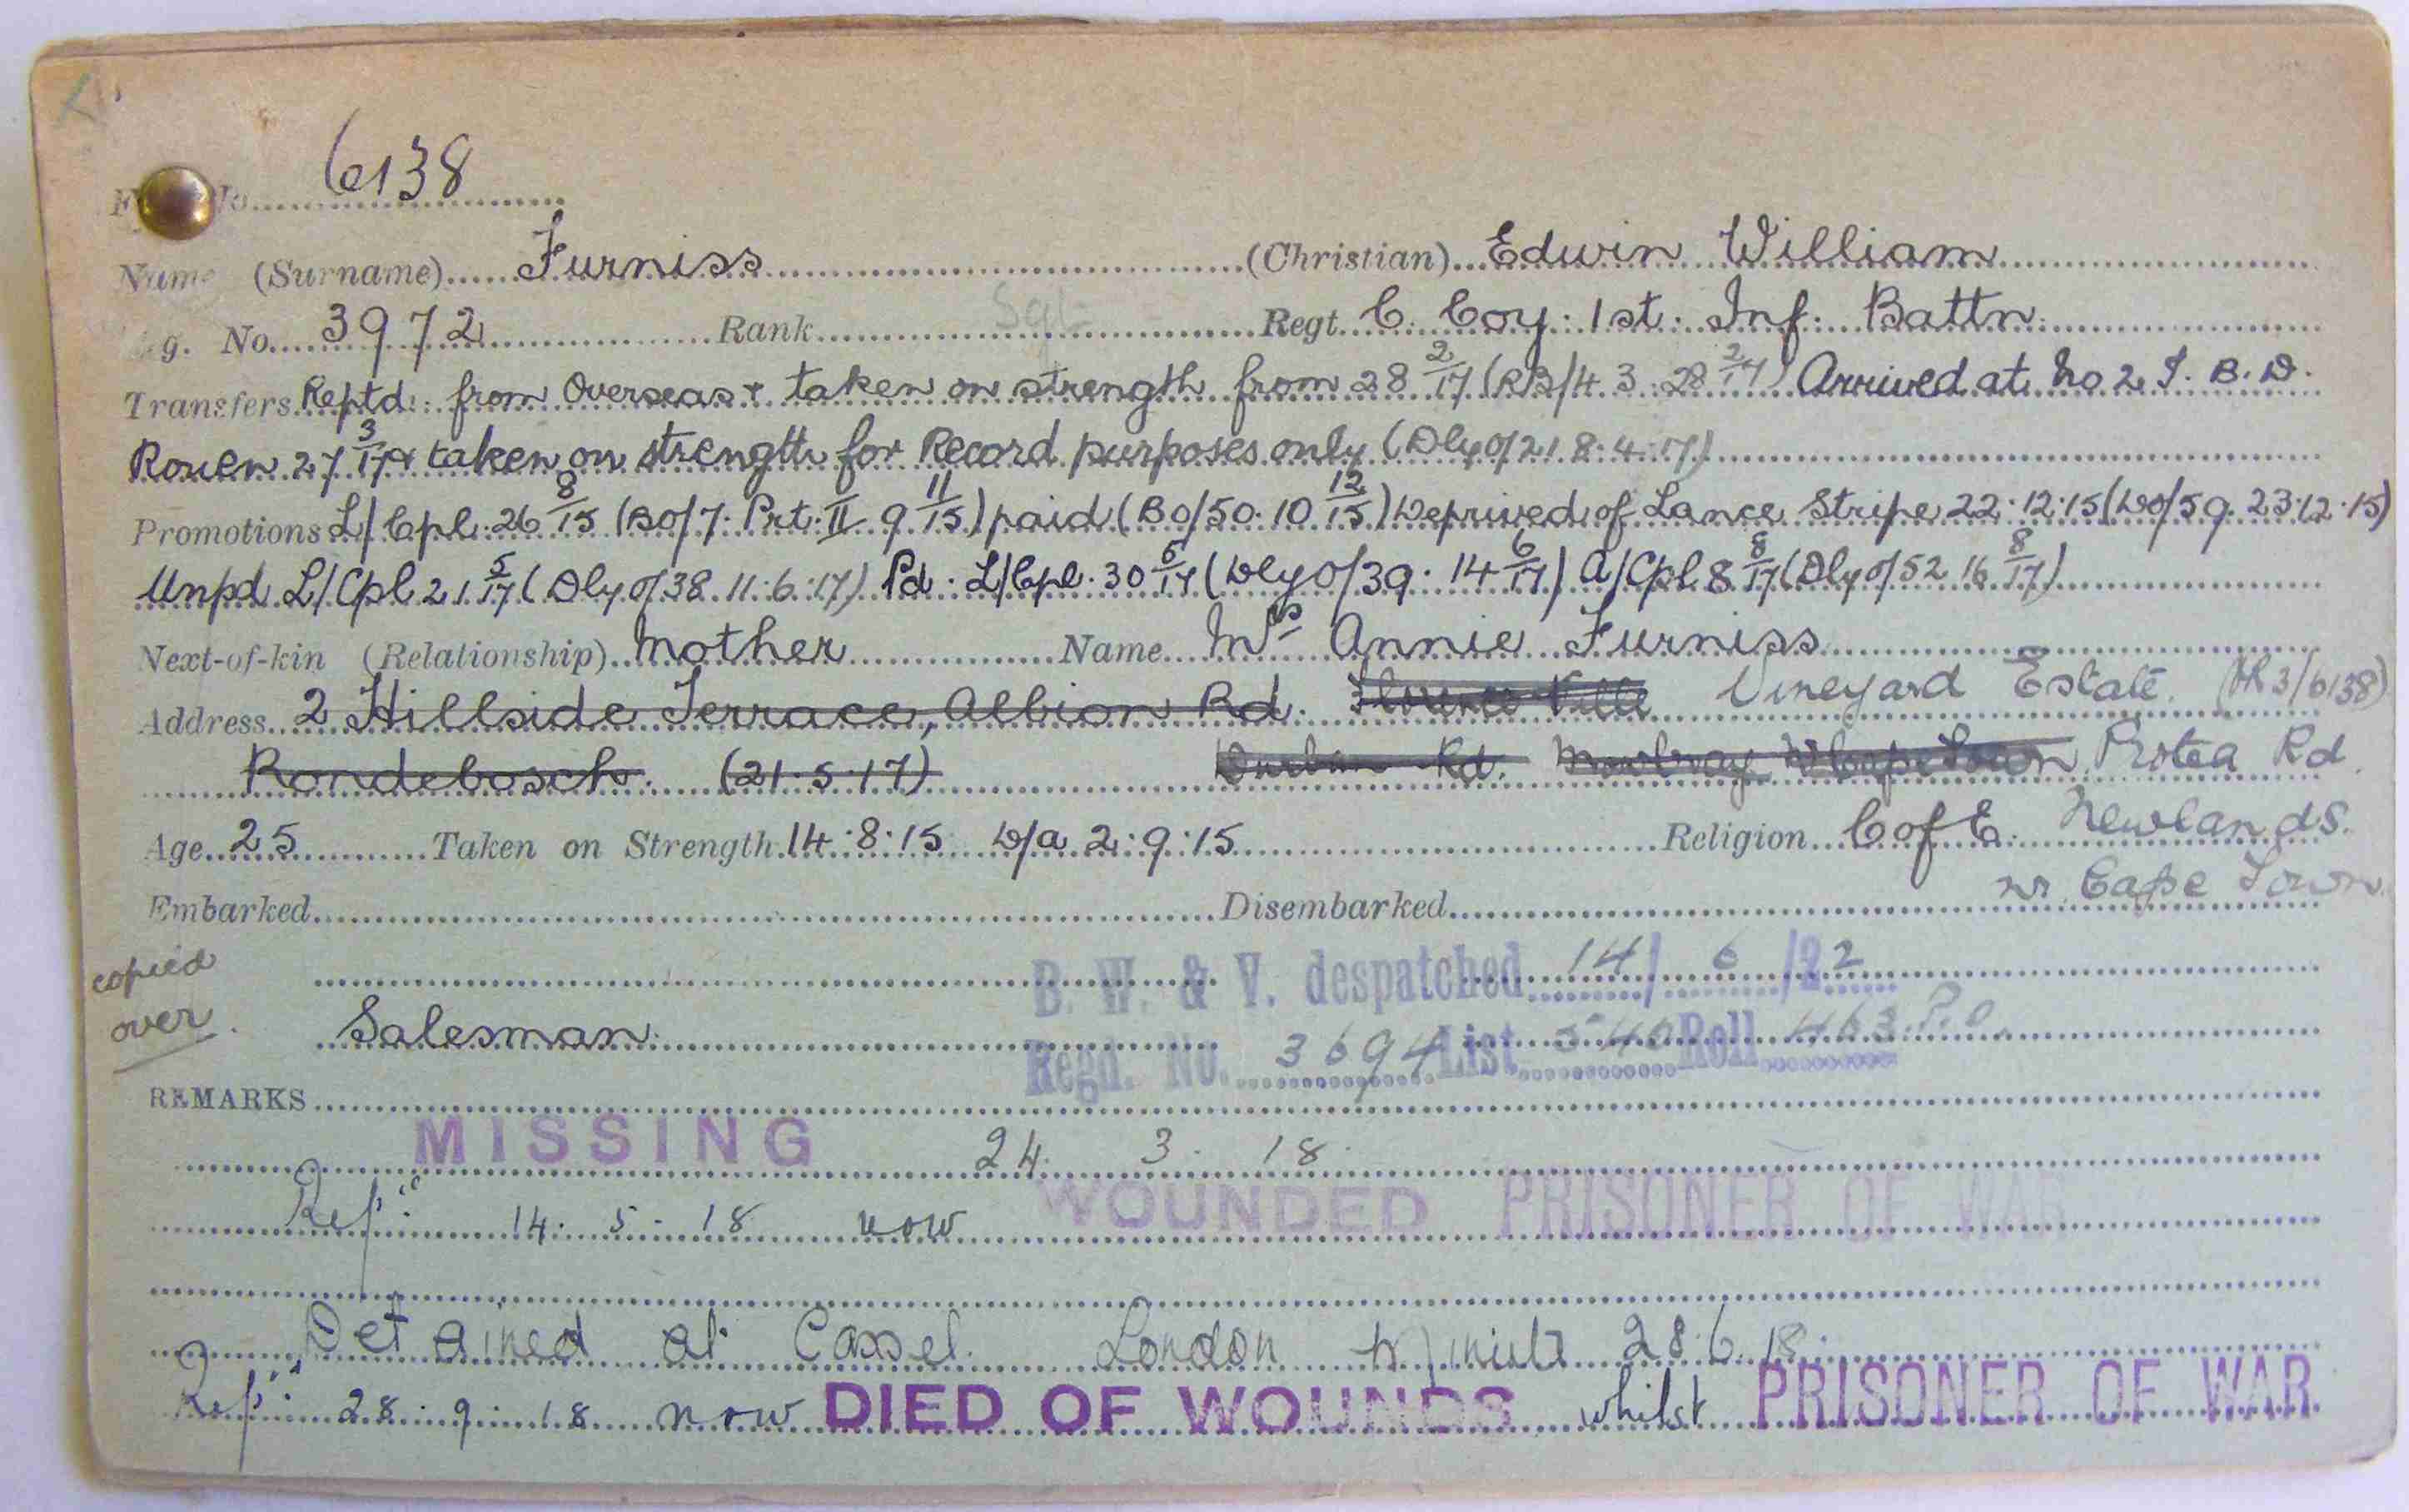 6138
Name (Surname) Furniss (Christian) Edwin William
g. No. 3972 Rank Sgt Regt. C. Coy. 1st. Inf. Battn.
Transfers Reptd. from Overseas & taken on strength from 28 2/17 (RB/43. 28 2/17) Arrived at No 2 I. B. D.
Rouen 27 3/17 & taken on strength for Record purposes only (Dly o/21. 8.4.17)
Promotions L/Cpl. 26 8/15 (BO/7. Prt. II 9 11/15) paid (BO/50. 10 12/15) Deprived of Lance Stripe 22.12.15 (DO/59. 23.12.15)
Unpd L/Cpl 21 5/17 (Dly o/38. 11.6.17) Pd. L/Cpl. 30 5/17 (Dly O/39. 14 6/17) A/Cpl 8 8/17 (Dly o/52 16 8/17)
Next-of-kin (Relationship) Mother Name Mrs Annie Furniss
Address 2 Hillside Terrace, Albion Rd. Florence Ville Vineyard Estate. 3/6138)
Rondebosch. (21.5.17) Durban Rd. Mowbray Cape Town Protea Rd.
Age 25 Taken on Strength 14.8.15 D/a 2.9.15 Religion C of E. Newlands.
Embarked Disembarked nr Cape Town
copied over.
B. W. & V. despatched 14/6/22
Salesman.
Regd. No. 3694 List 540 Roll 463
REMARKS
MISSING 24. 3. 18.
Rep'd 14. 5. 18 now WOUNDED PRISONER OF WAR
Detained at Cassel. London 28.6.18.
Rep'd 28. 9. 18 now DIED OF WOUNDS whilst PRISONER OF WAR